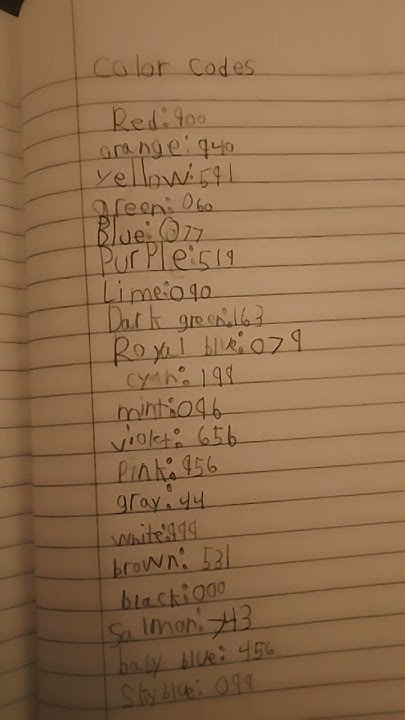 Color Codes
Red: 900
orange: 940
yellow: 591
green: 060
Blue: 077
PurPle: 519
Lime: 090
Dark green: 163
Royal blue: 079
cyan: 199
mint: 096
violet: 656
Pink: 956
gray: 44
white: 999
brown: 531
black: 000
Salmon: 743
baby blue: 456
Sky blue: 099